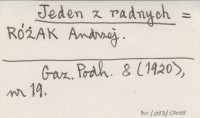 Jeden z radnych =
RÓŻAK Andrzej.
Gaz. Podh. 8 (1920),
nr 19.